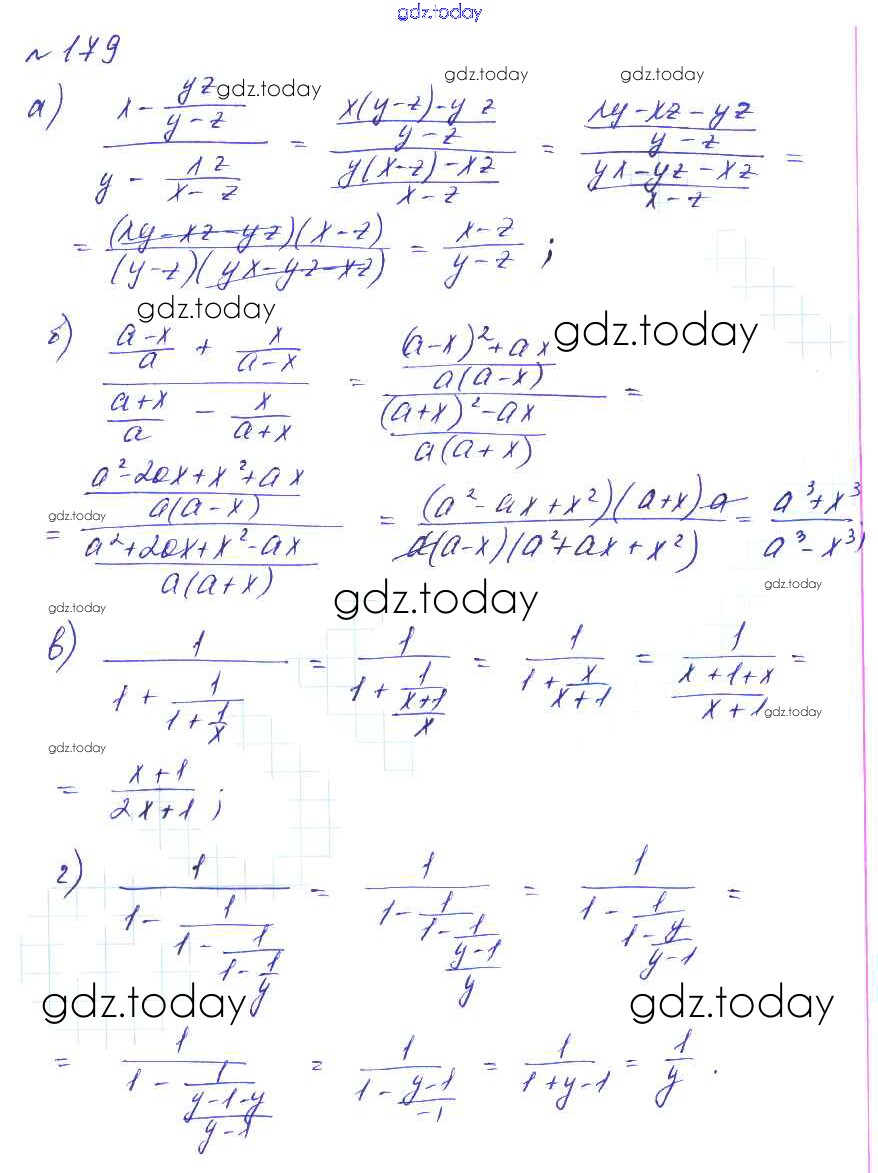 gdz.today
№ 179
а) (x - yz/(y-z)) / (y - xz/(x-z)) = ((x(y-z)-yz)/(y-z)) / ((y(x-z)-xz)/(x-z)) = ((xy-xz-yz)/(y-z)) / ((yx-yz-xz)/(x-z)) =
gdz.today gdz.today gdz.today
= ((xy-xz-yz)(x-z)) / ((y-z)(yx-yz-xz)) = (x-z)/(y-z) ;
gdz.today gdz.today
б) ((a-x)/a + x/(a-x)) / ((a+x)/a - x/(a+x)) = (((a-x)²+ax)/(a(a-x))) / (((a+x)²-ax)/(a(a+x))) =
gdz.today
= ((a²-2ax+x²+ax)/(a(a-x))) / ((a²+2ax+x²-ax)/(a(a+x))) = ((a²-ax+x²)(a+x)a) / (a(a-x)(a²+ax+x²)) = (a³+x³)/(a³-x³);
gdz.today gdz.today gdz.today
в) 1/(1 + 1/(1 + 1/x)) = 1/(1 + 1/((x+1)/x)) = 1/(1 + x/(x+1)) = 1/((x+1+x)/(x+1)) =
gdz.today
gdz.today
= (x+1)/(2x+1) ;
г) 1/(1 - 1/(1 - 1/(1 - 1/y))) = 1/(1 - 1/(1 - 1/((y-1)/y))) = 1/(1 - 1/(1 - y/(y-1))) =
gdz.today gdz.today
= 1/(1 - 1/((y-1-y)/(y-1))) = 1/(1 - (y-1)/(-1)) = 1/(1+y-1) = 1/y .